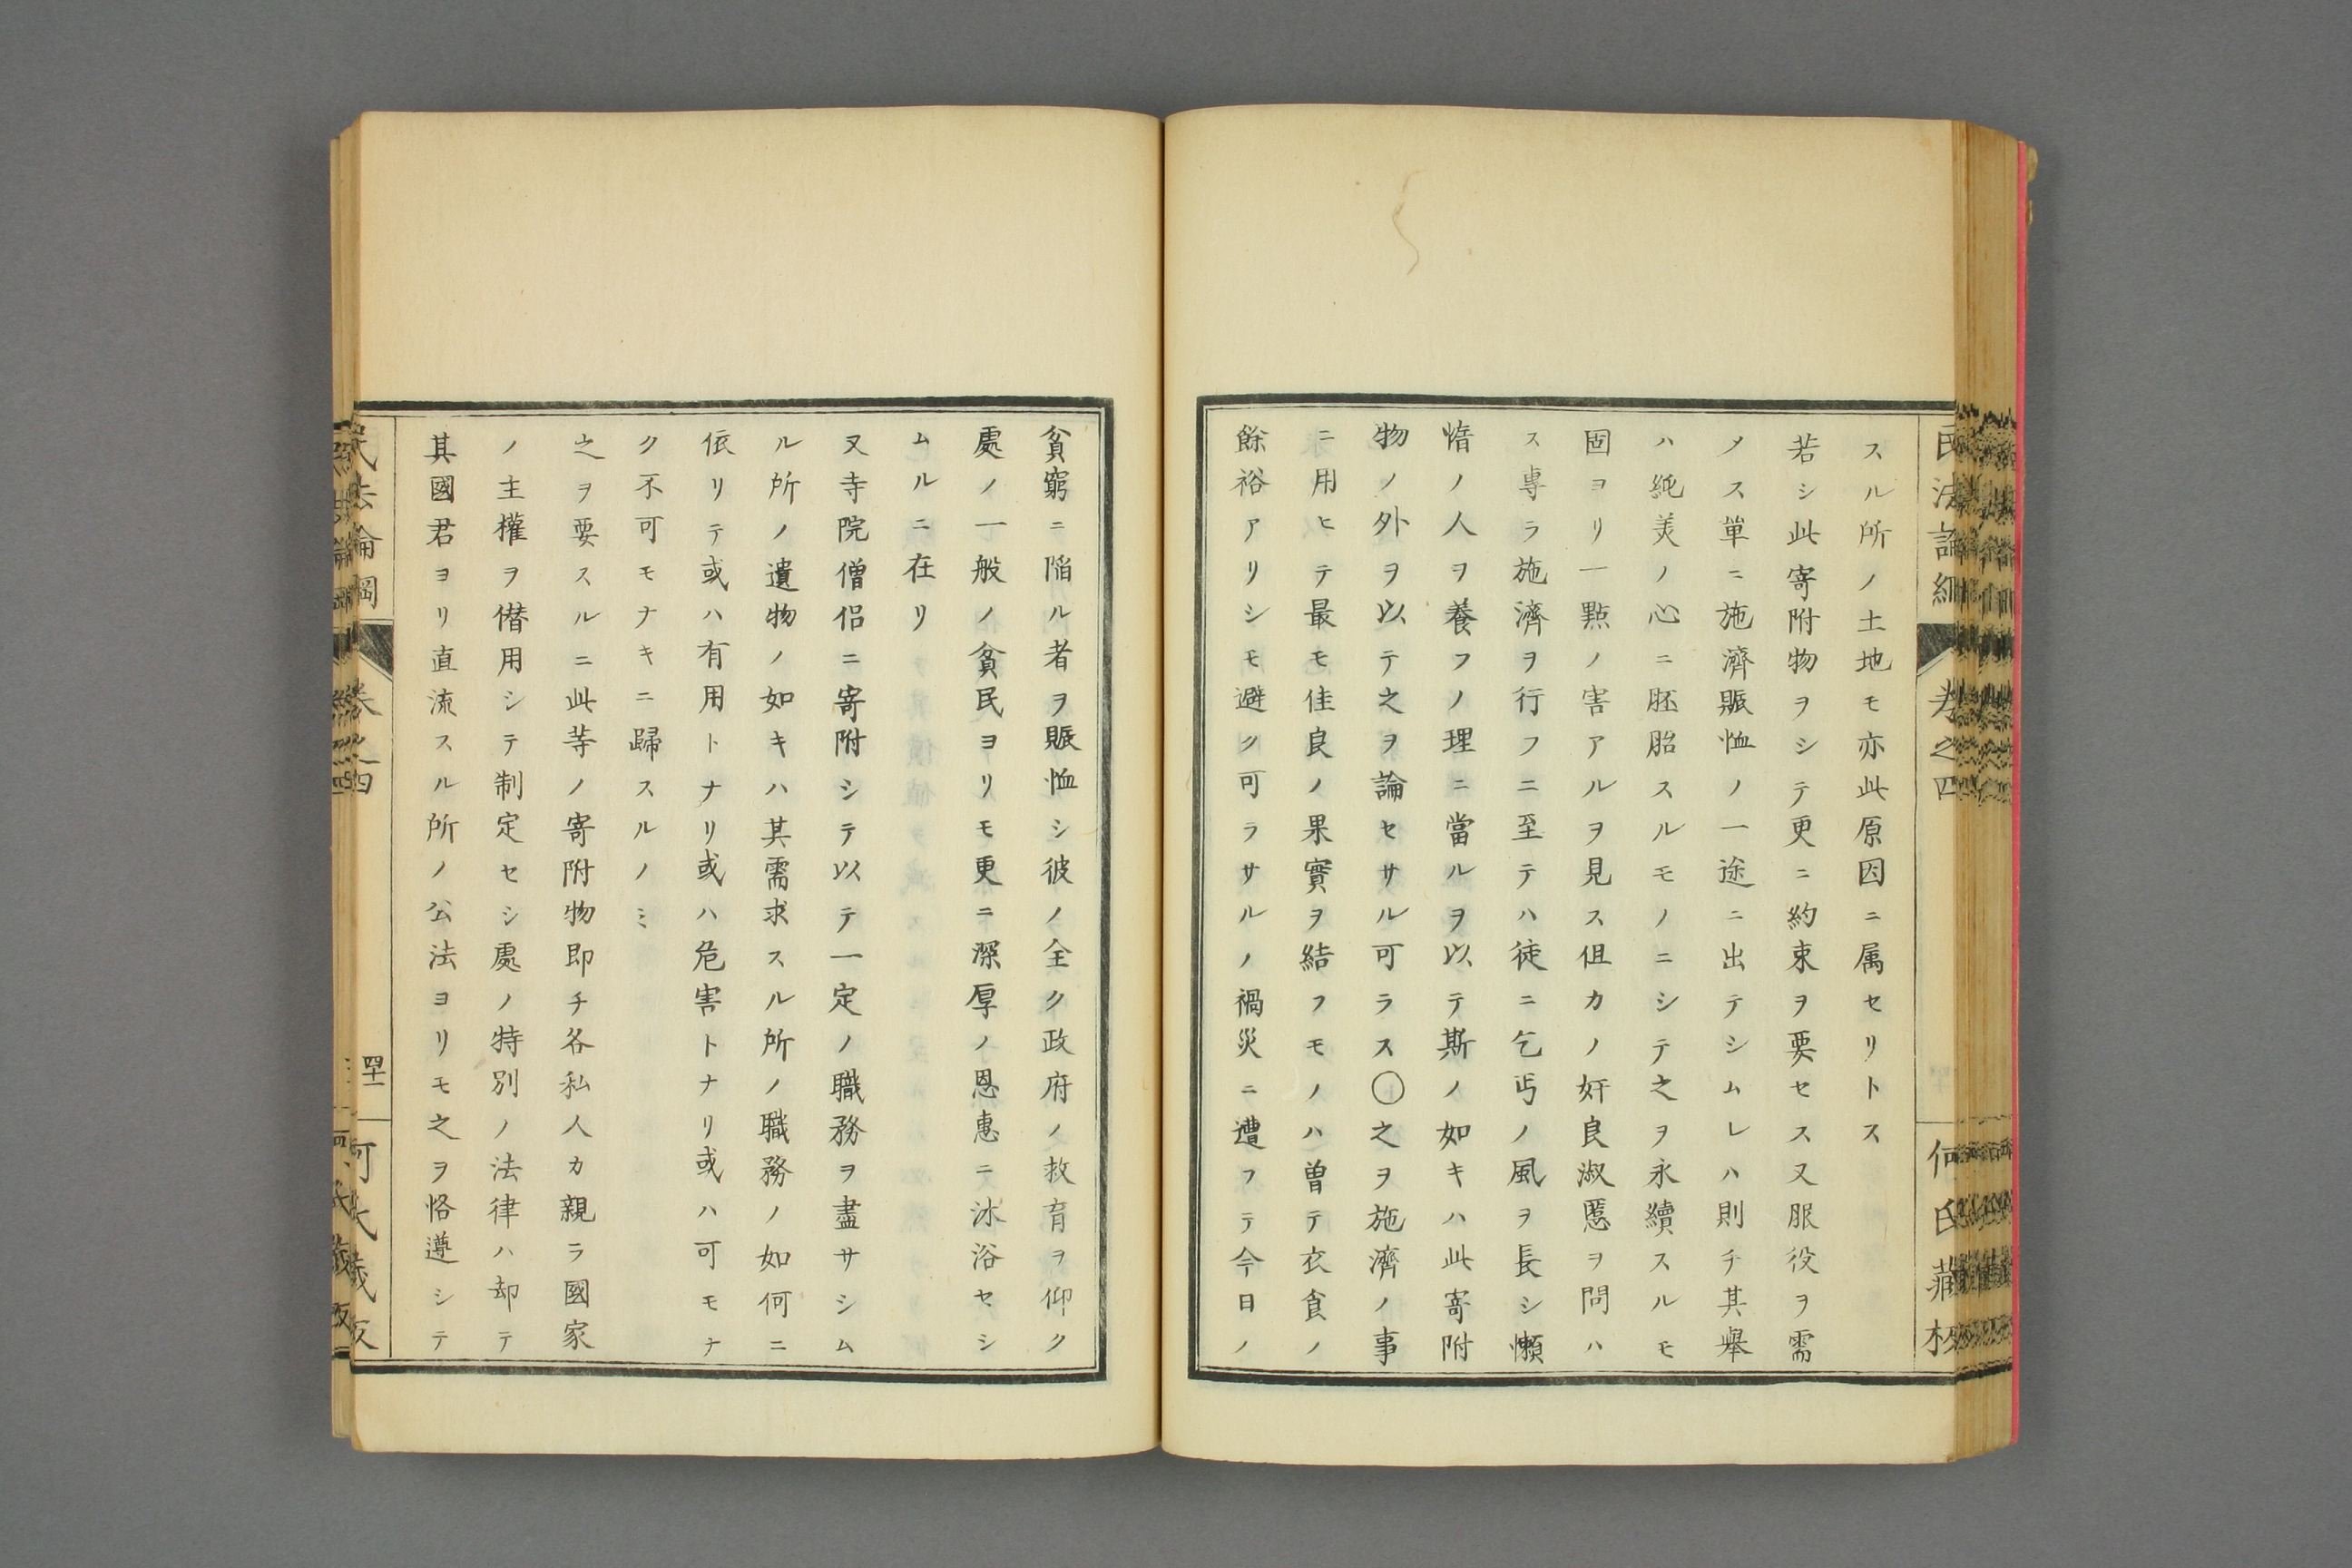 スル所ノ土地モ亦此原因ニ属セリトス
若シ此寄附物ヲシテ更ニ約束ヲ要セス又服役ヲ需
メス單ニ施濟賑恤ノ一途ニ出テシムレハ則チ其舉
ハ純美ノ心ニ胚胎スルモノニシテ之ヲ永續スルモ
固ヨリ一點ノ害アルヲ見ス但カノ奸良淑慝ヲ問ハ
ス專ラ施濟ヲ行フニ至テハ徒ニ乞丐ノ風ヲ長シ懶
惰ノ人ヲ養フノ理ニ當ルヲ以テ斯ノ如キハ此寄附
物ノ外ヲ以テ之ヲ論セサル可ラス〇之ヲ施濟ノ事
ニ用ヒテ最モ佳良ノ果實ヲ結フモノハ曽テ衣食ノ
餘裕アリシモ避ク可ラサルノ禍災ニ遭フテ今日ノ
貧窮ニ陥ル者ヲ賑恤シ彼ノ全ク政府ノ救育ヲ仰ク
處ノ一般ノ貧民ヨリモ更ニ深厚ノ恩惠ニ沐浴セシ
ムルニ在リ
又寺院僧侶ニ寄附シテ以テ一定ノ職務ヲ盡サシム
ル所ノ遺物ノ如キハ其需求スル所ノ職務ノ如何ニ
依リテ或ハ有用トナリ或ハ危害トナリ或ハ可モナ
ク不可モナキニ歸スルノミ
之ヲ要スルニ此等ノ寄附物即チ各私人カ親ラ國家
ノ主權ヲ僭用シテ制定セシ處ノ特別ノ法律ハ却テ
其國君ヨリ直流スル所ノ公法ヨリモ之ヲ恪遵シテ
民法論綱 卷之四 四十一 何氏藏版